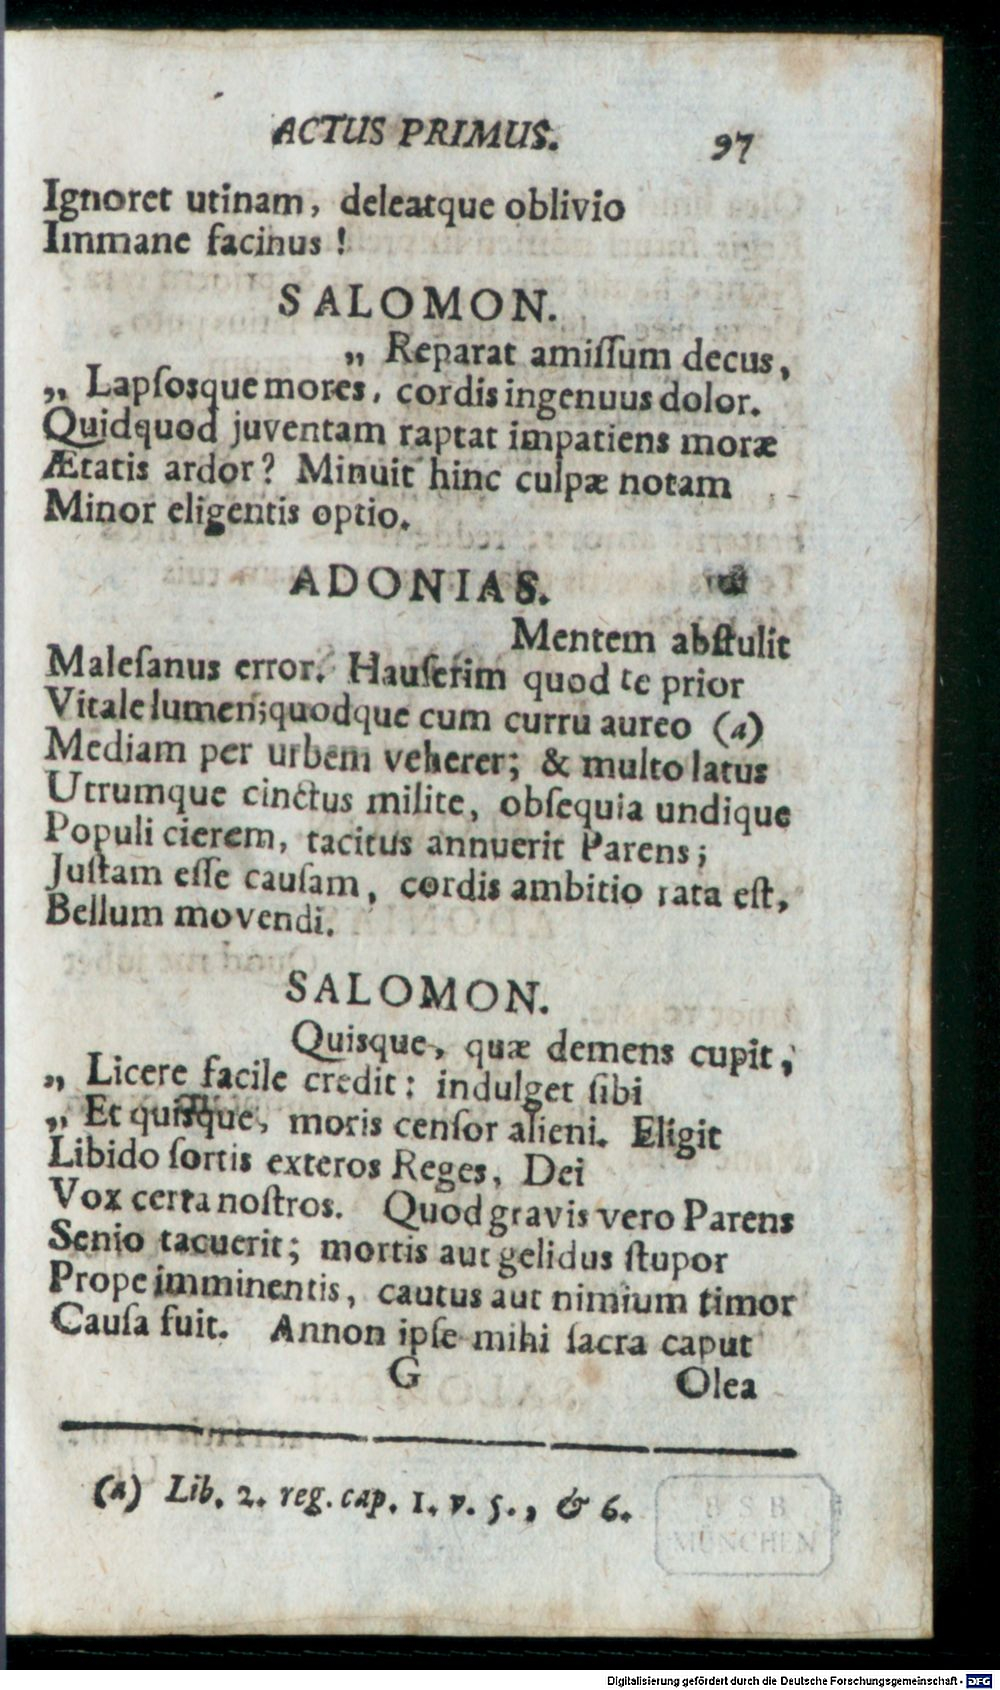 ACTUS PRIMUS. 97
Ignoret utinam, deleatque oblivio
Immane facinus !
SALOMON.
„ Reparat amiſſum decus,
„ Lapſosque mores, cordis ingenuus dolor.
Quidquod juventam raptat impatiens moræ
Ætatis ardor? Minuit hinc culpæ notam
Minor eligentis optio.
ADONIAS.
Mentem abſtulit
Maleſanus error. Hauſerim quod te prior
Vitale lumen; quodque cum curru aureo (a)
Mediam per urbem veherer; & multo latus
Utrumque cinctus milite, obſequia undique
Populi cierem, tacitus annuerit Parens;
Juſtam eſſe cauſam, cordis ambitio rata eſt,
Bellum movendi.
SALOMON.
Quisque, quæ demens cupit,
„ Licere facile credit: indulget ſibi
„ Et quisque, moris cenſor alieni. Eligit
Libido ſortis exteros Reges, Dei
Vox certa noſtros. Quod gravis vero Parens
Senio tacuerit; mortis aut gelidus ſtupor
Prope imminentis, cautus aut nimium timor
Cauſa fuit. Annon ipſe mihi ſacra caput
G Olea
(a) Lib. 2. reg. cap. 1. v. 5., & 6.
BSB
MÜNCHEN
Digitalisierung gefördert durch die Deutsche Forschungsgemeinschaft - DFG